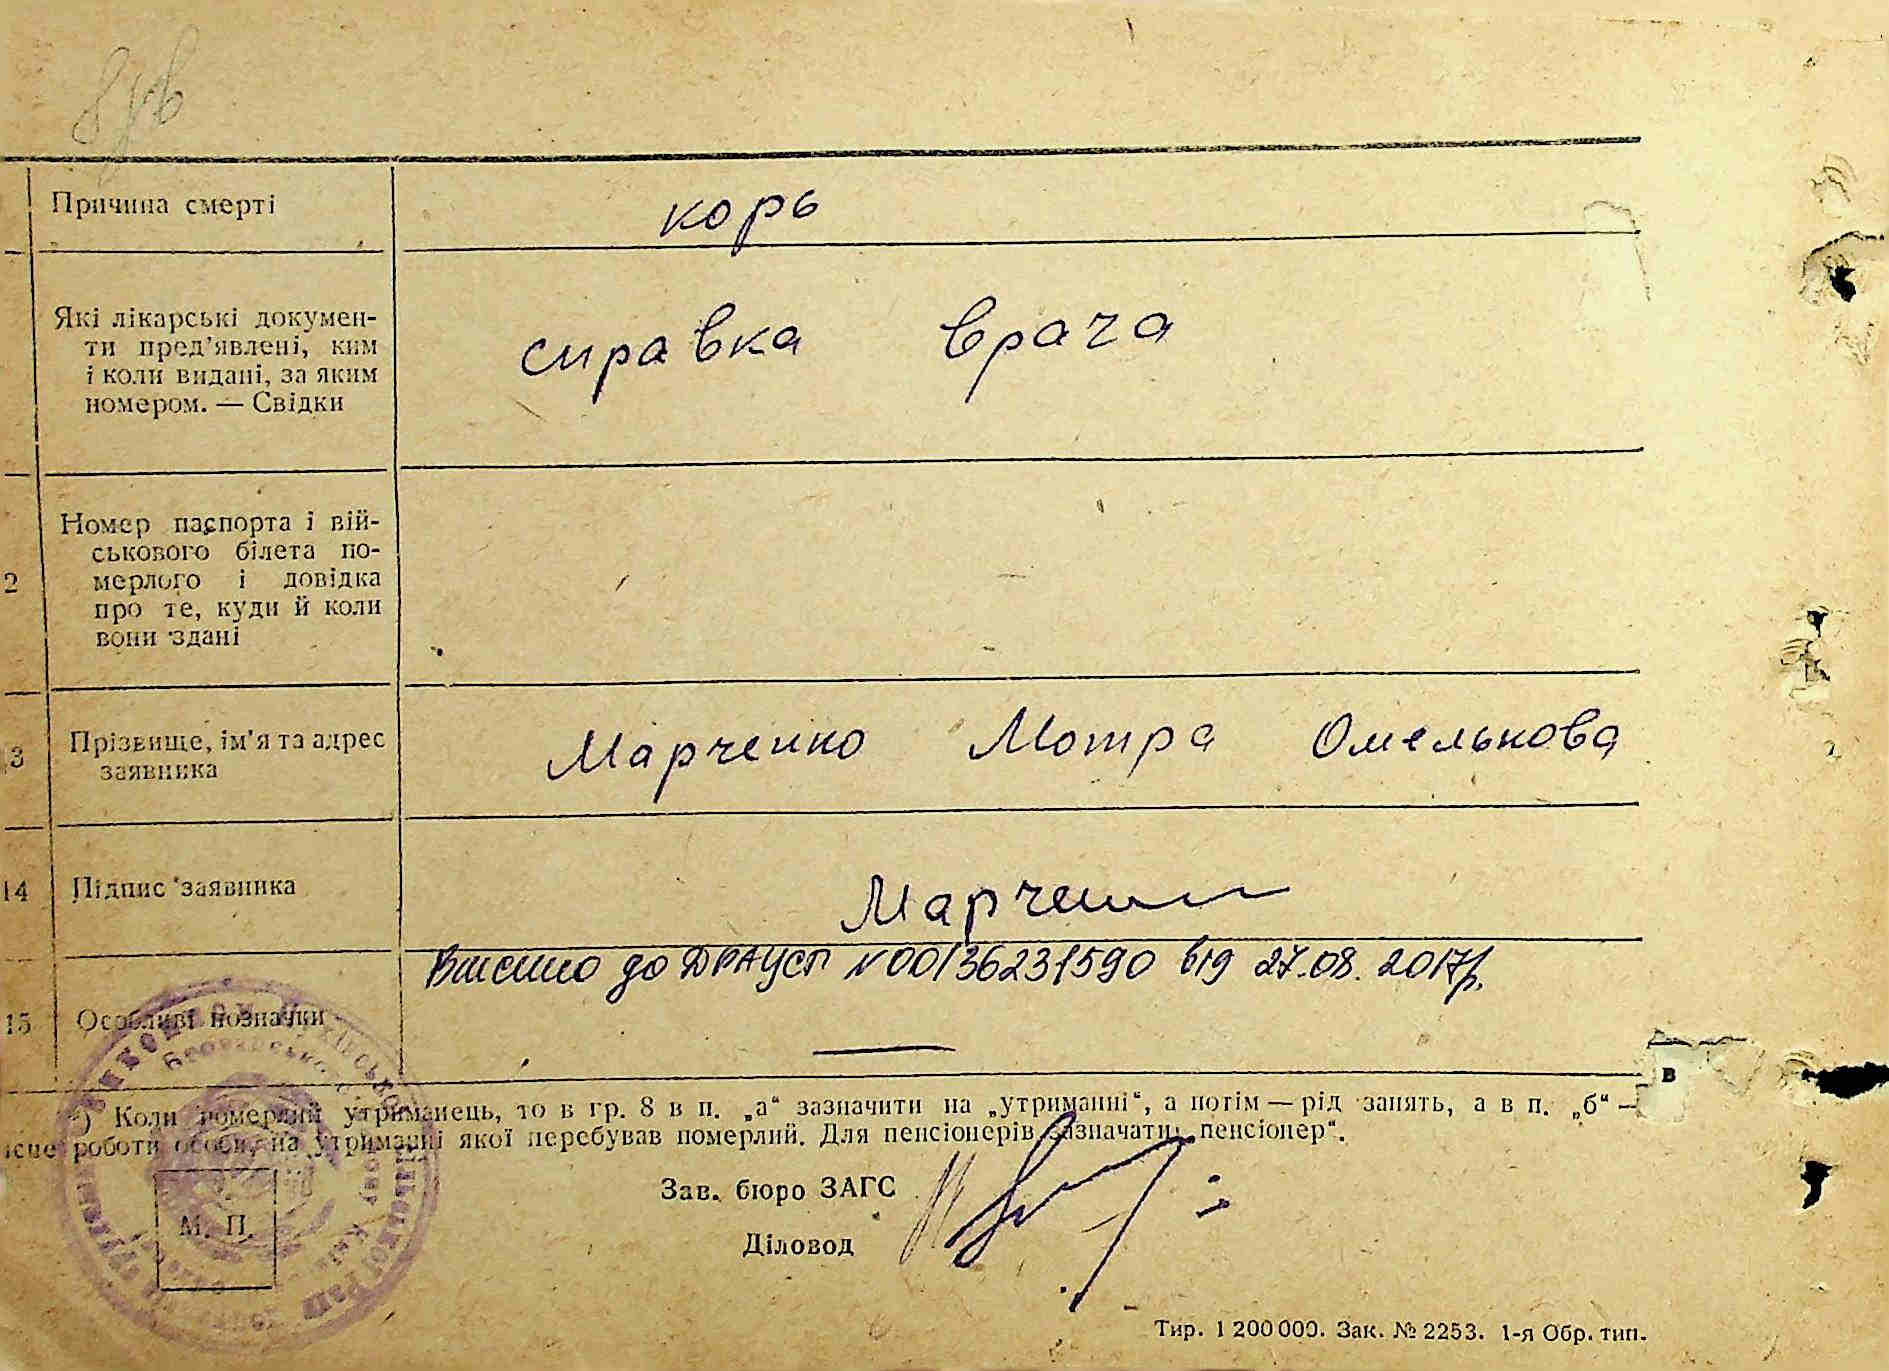 Причина смерті
корь
Які лікарські докумен-
ти пред'явлені, ким
і коли видані, за яким
номером. — Свідки
справка врача
2
Номер паспорта і вій-
ськового білета по-
мерлого і довідка
про те, куди й коли
вони здані
3
Прізвище, ім'я та адрес
заявника
Марченко Мотра Омелькова
14
Підпис заявника
Марченко
Внесено до ДРАЦСГ №00136231590 від 27.08.2017р.
15
Особливі позначки
*) Коли померлий утриманець, то в гр. 8 в п. „а“ зазначити на „утриманні“, а потім — рід занять, а в п. „б“ —
ісце роботи особи, на утриманні якої перебував померлий. Для пенсіонерів зазначати „пенсіонер“.
Зав. бюро ЗАГС
М. П.
Діловод
Тир. 1 200 000. Зак. № 2253. 1-я Обр. тип.